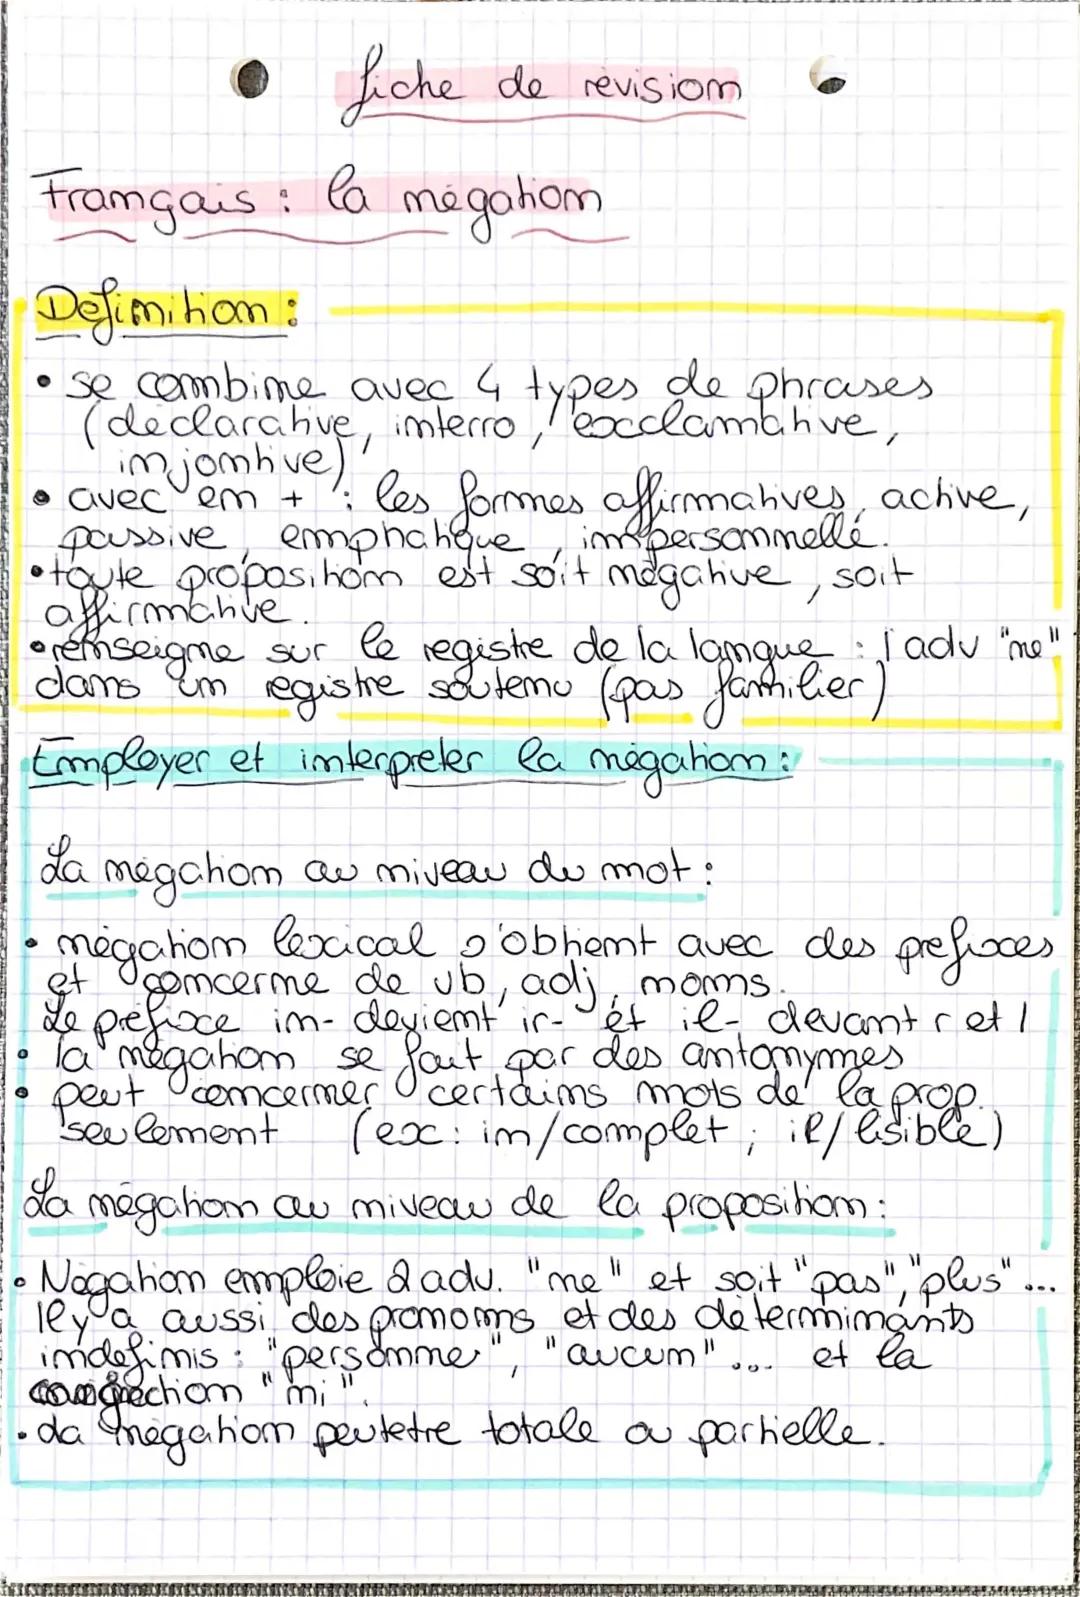 fiche de révision
Français : la négation
Définition :
• se combine avec 4 types de phrases
(déclarative, interro, exclamative,
injontive)
• avec en + : les formes affirmatives, active,
passive, emphatique, impersonnelle.
• toute proposition est soit négative, soit
affirmative.
• renseigne sur le registre de la langue : l'adv "ne"
dans un registre soutenu (pas familier)
Employer et interpreter la négation :
La négation au niveau du mot :
• négation lexical s'obtient avec des prefixes
et concerne de vb, adj, noms.
Le préfixe in- devient ir- et il- devant r et l
• la négation se fait par des antonymes
• peut concerner certains mots de la prop.
seulement (ex : in/complet ; il/lisible)
La négation au niveau de la proposition :
• Négation emploie 2 adv. "ne" et soit "pas", "plus"...
Il y a aussi des pronoms et des déterminants
indefinis : "personne", "aucun"... et la
conjection "ni".
• La négation peutetre totale ou partielle.